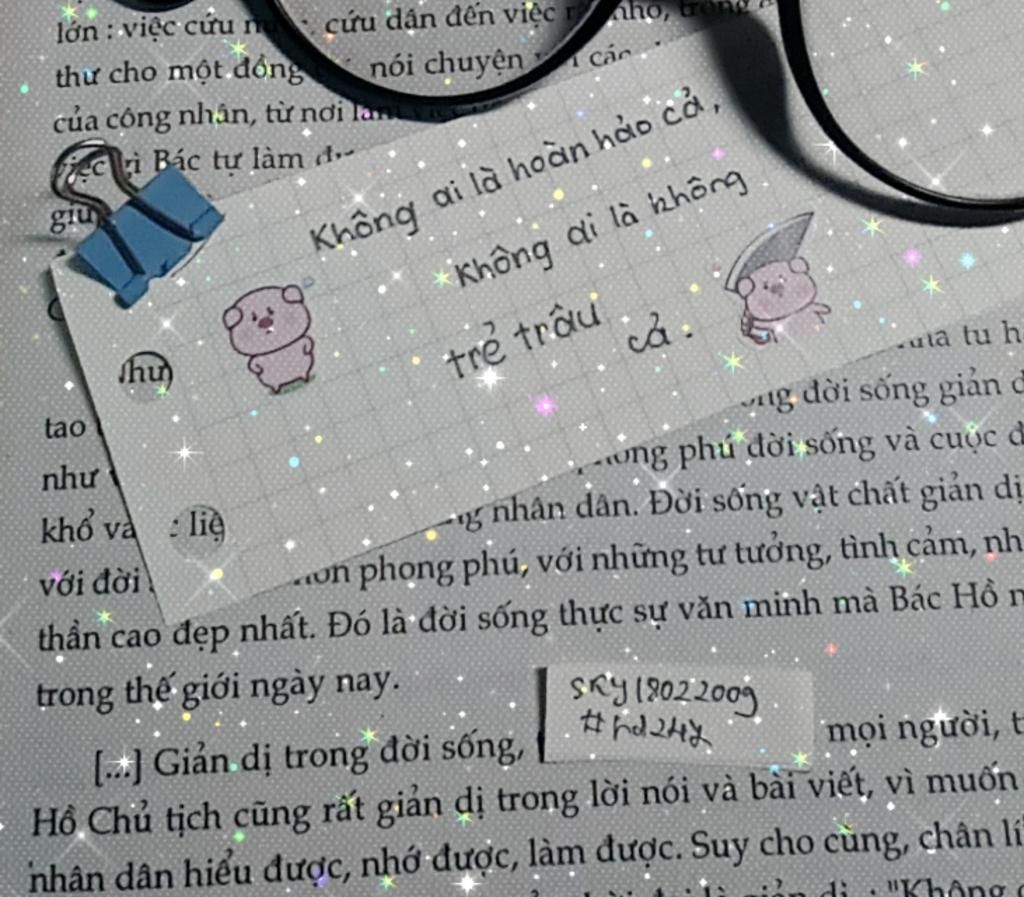 lớn : việc cứu cứu dân đến việc nhỏ, trong
thư cho một đồng nói chuyện
của công nhân, từ nơi làm
việc gì Bác tự làm
giú
Không ai là hoàn hảo cả,
Không ai là không
trẻ trâu cả.
như
: liệ
tu h
tao đời sống giản d
như phong phú đời sống và cuộc đ
khổ và nhân dân. Đời sống vật chất giản dị
với đời phong phú, với những tư tưởng, tình cảm, nh
thần cao đẹp nhất. Đó là đời sống thực sự văn minh mà Bác Hồ n
trong thế giới ngày nay.
SRY18022009
#hd24y
[...] Giản dị trong đời sống, mọi người, t
Hồ Chủ tịch cũng rất giản dị trong lời nói và bài viết, vì muốn
nhân dân hiểu được, nhớ được, làm được. Suy cho cùng, chân lí
giản dị : "Không